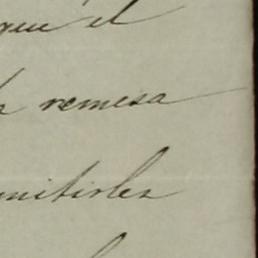 que el
remesa
mitirles